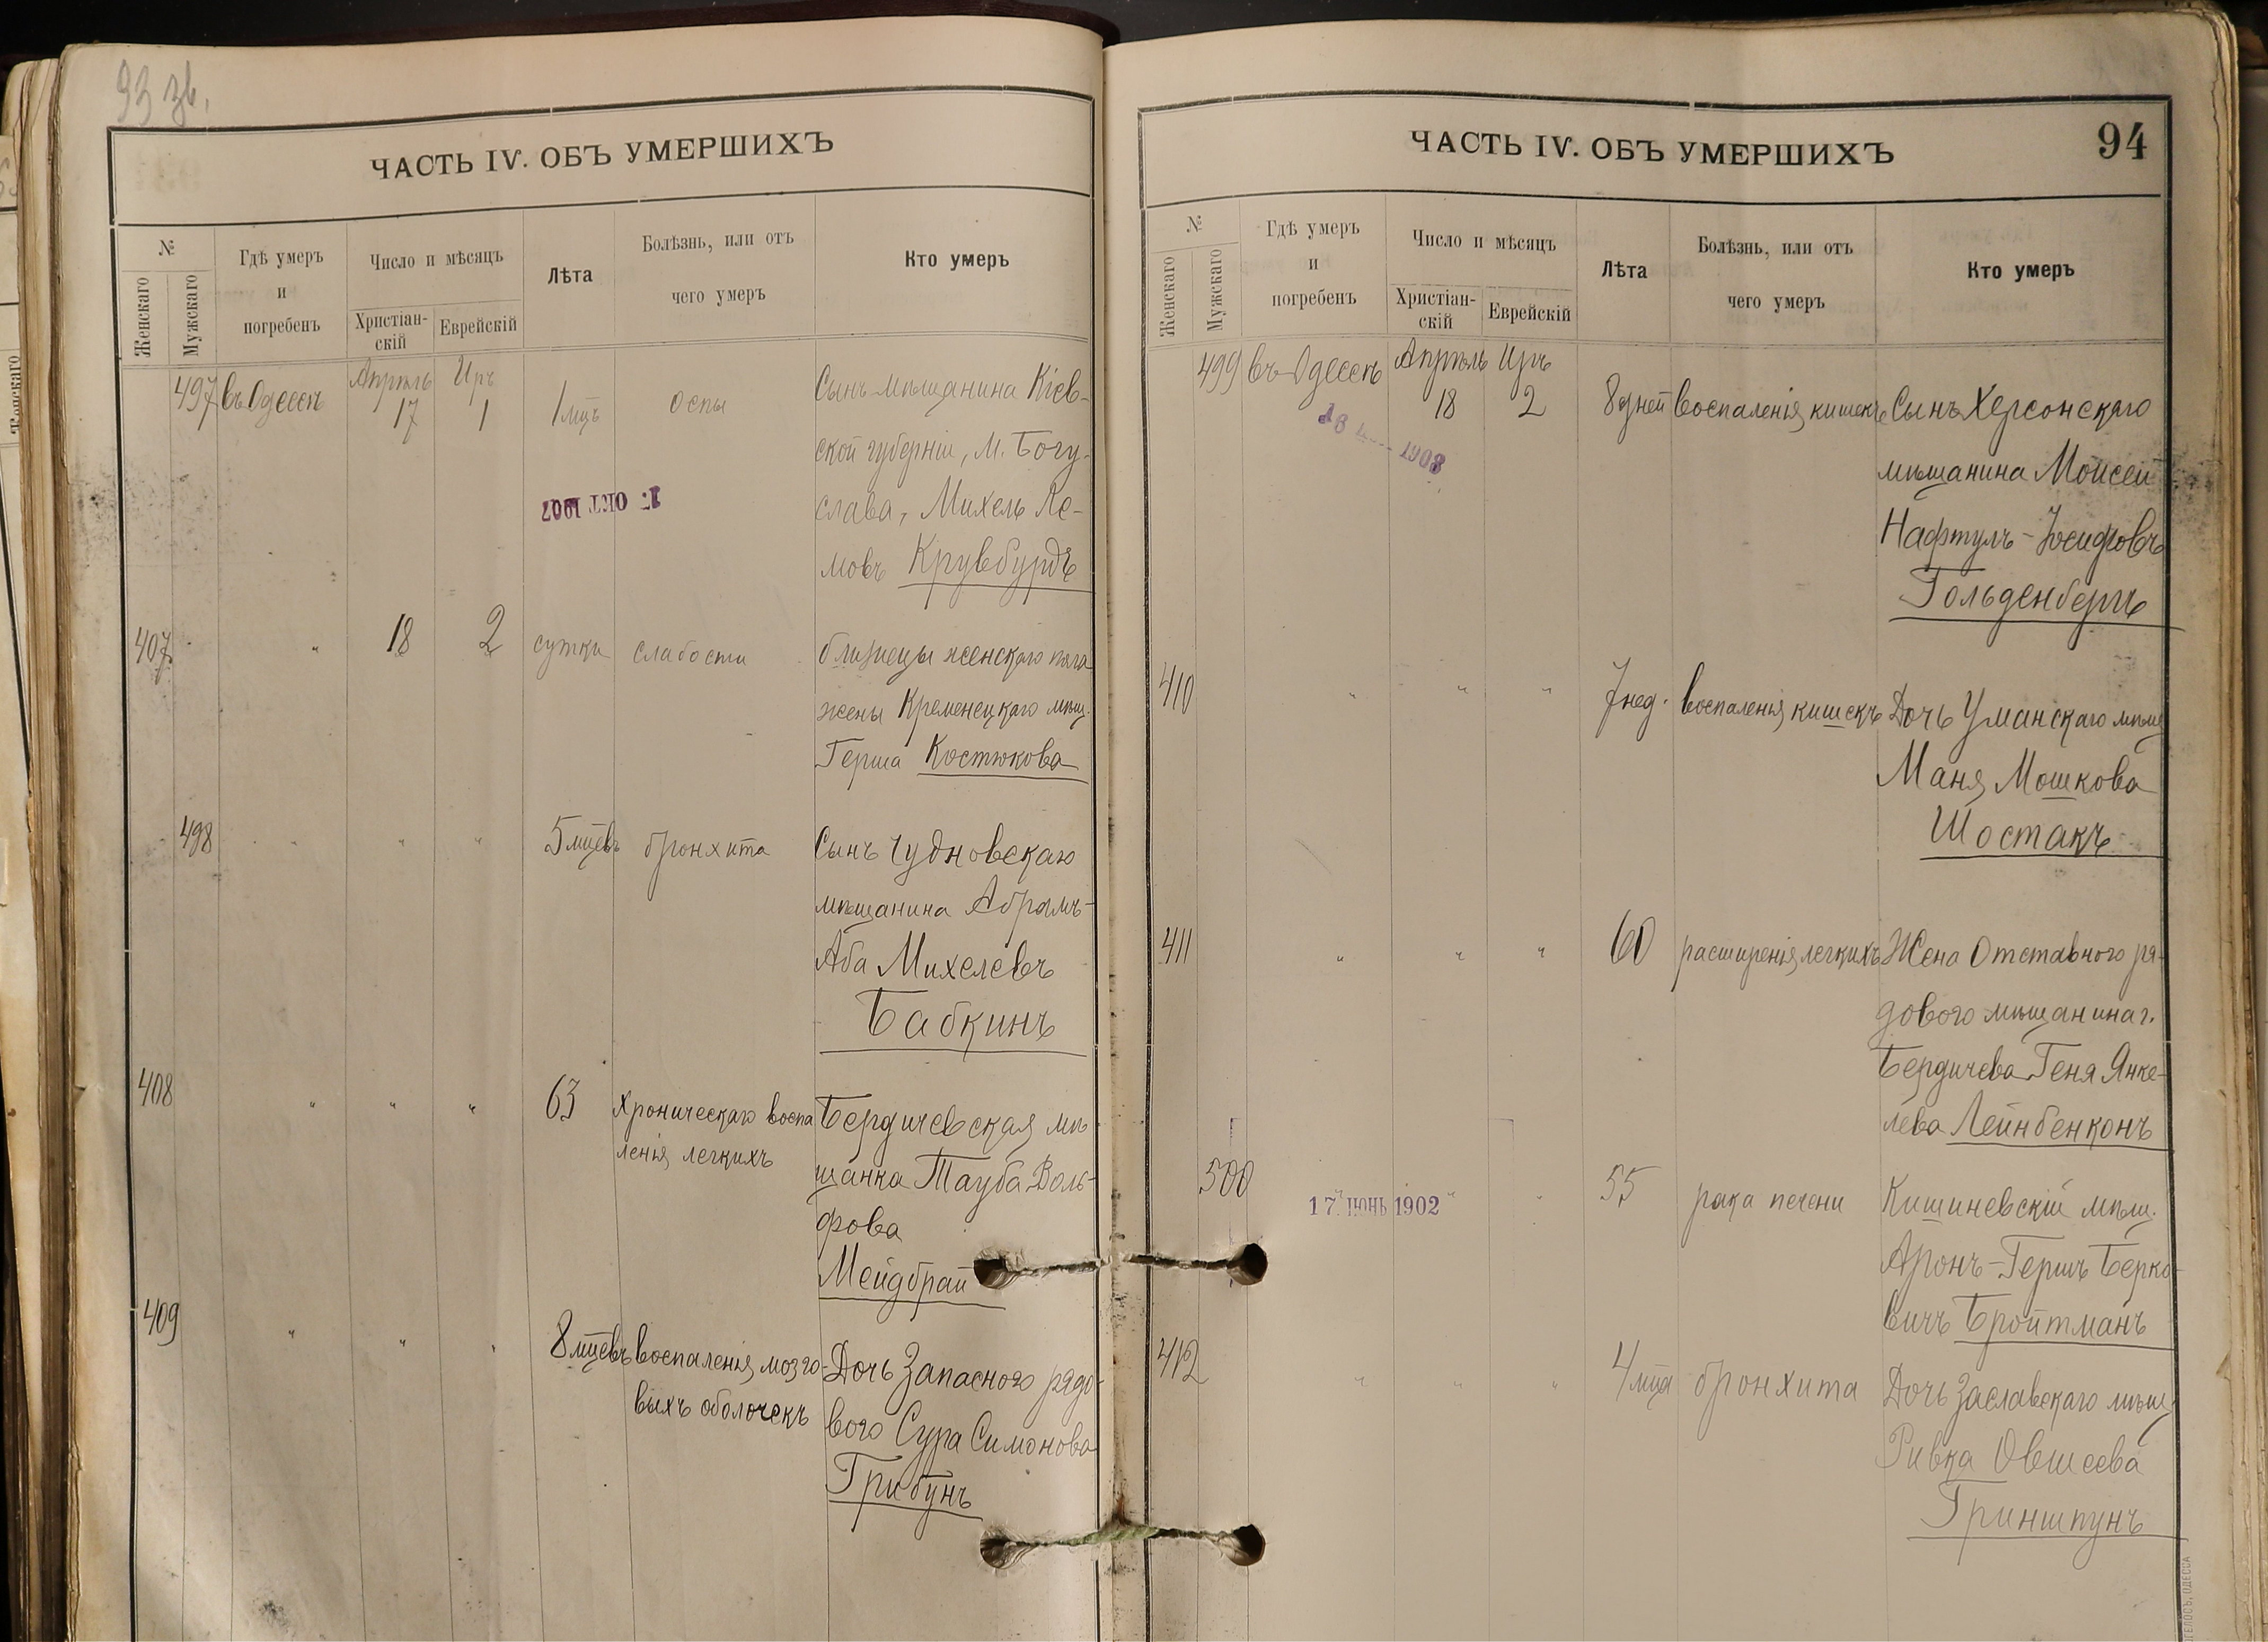 93 зв.
ЧАСТЬ IV. ОБЪ УМЕРШИХЪ
№
Женскаго
Мужскаго
Гдѣ умеръ
и
погребенъ
Число и мѣсяцъ
Христіан-
скій
Еврейскій
Лѣта
Болѣзнь, или отъ
чего умеръ
Кто умеръ
497 въ Одессѣ Апрѣль 17 Иръ 1 1 мцъ оспы Сынъ мѣщанина Кіев-
ской губерніи, м. Богу-
слава, Михель Ке-
мовъ Крувбурдъ
17 ОКТ 1907
407 " 18 2 сутки слабости близнецы женскаго пола
жены Кременецкаго мѣщ.
Герша Костюкова
498 " " " 5 мцевъ бронхита Сынъ Чудновскаго
мѣщанина Абрамъ-
Аба Михелевъ
Бабкинъ
408 " " " 63 хроническаго воспа Бердичевская мѣ
ленія легкихъ щанка Тауба Воль-
фова
Мейдбрай
409 " " " 8 мцевъ воспаленія мозго- Дочь Запаснаго рядо-
выхъ оболочекъ вого Сура Симонова
Грибунъ
ЧАСТЬ IV. ОБЪ УМЕРШИХЪ
94
№
Женскаго
Мужскаго
Гдѣ умеръ
и
погребенъ
Число и мѣсяцъ
Христіан-
скій
Еврейскій
Лѣта
Болѣзнь, или отъ
чего умеръ
Кто умеръ
499 въ Одессѣ Апрѣль 18 Иръ 2 8 дней воспаленія кишекъ Сынъ Херсонскаго
мѣщанина Моисей
Нафтулъ-Іосифовъ
Гольденбергъ
18 1908
410 " " " 7 нед. воспаленія кишекъ Дочь Уманскаго мѣщ
Маня Мошкова
Шостакъ
411 " " " 60 расширенія легкихъ Жена Отставного ря-
дового мѣщанина г.
Бердичева Геня Янке-
лева Лейнбенконъ
500 " " " 55 рака печени Кишиневскій мѣщ.
17 ІЮНЬ 1902
Аронъ-Гершъ Берко-
вичъ Бройтманъ
412 " " " 4 мца бронхита Дочь Заславскаго мѣщ
Ривка Овшеева
Гриншпунъ